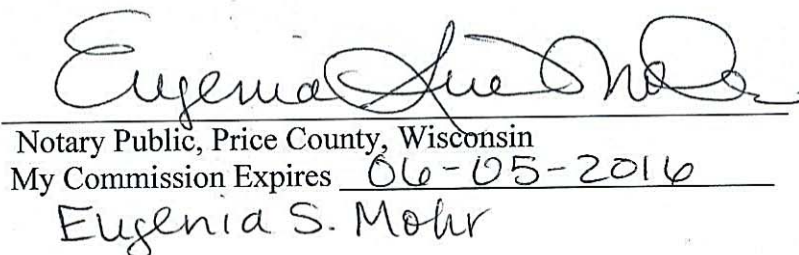 Eugenia Sue Mohr
Notary Public, Price County, Wisconsin
My Commission Expires 06-05-2016
Eugenia S. Mohr